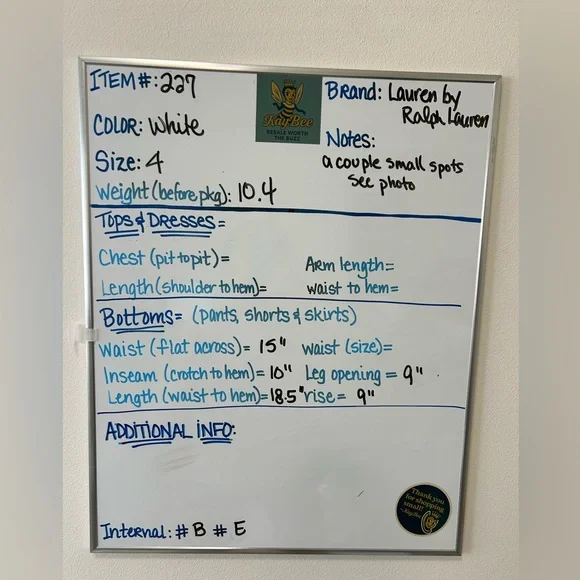 ITEM#: 227
COLOR: White
Size: 4
Weight (before pkg): 10.4
KayBee
RESALE WORTH
THE BUZZ
Brand: Lauren by
Ralph Lauren
Notes:
a couple small spots
see photo
Tops & Dresses=
Chest (pit to pit)=
Arm length=
Length (shoulder to hem)=
waist to hem=
Bottoms= (pants, shorts & skirts)
Waist (flat across)= 15" waist (size)=
Inseam (crotch to hem)= 10" Leg opening= 9"
Length (waist to hem)= 18.5" rise= 9"
ADDITIONAL INFO:
Thank you
for shopping
small!
Internal: #B #E